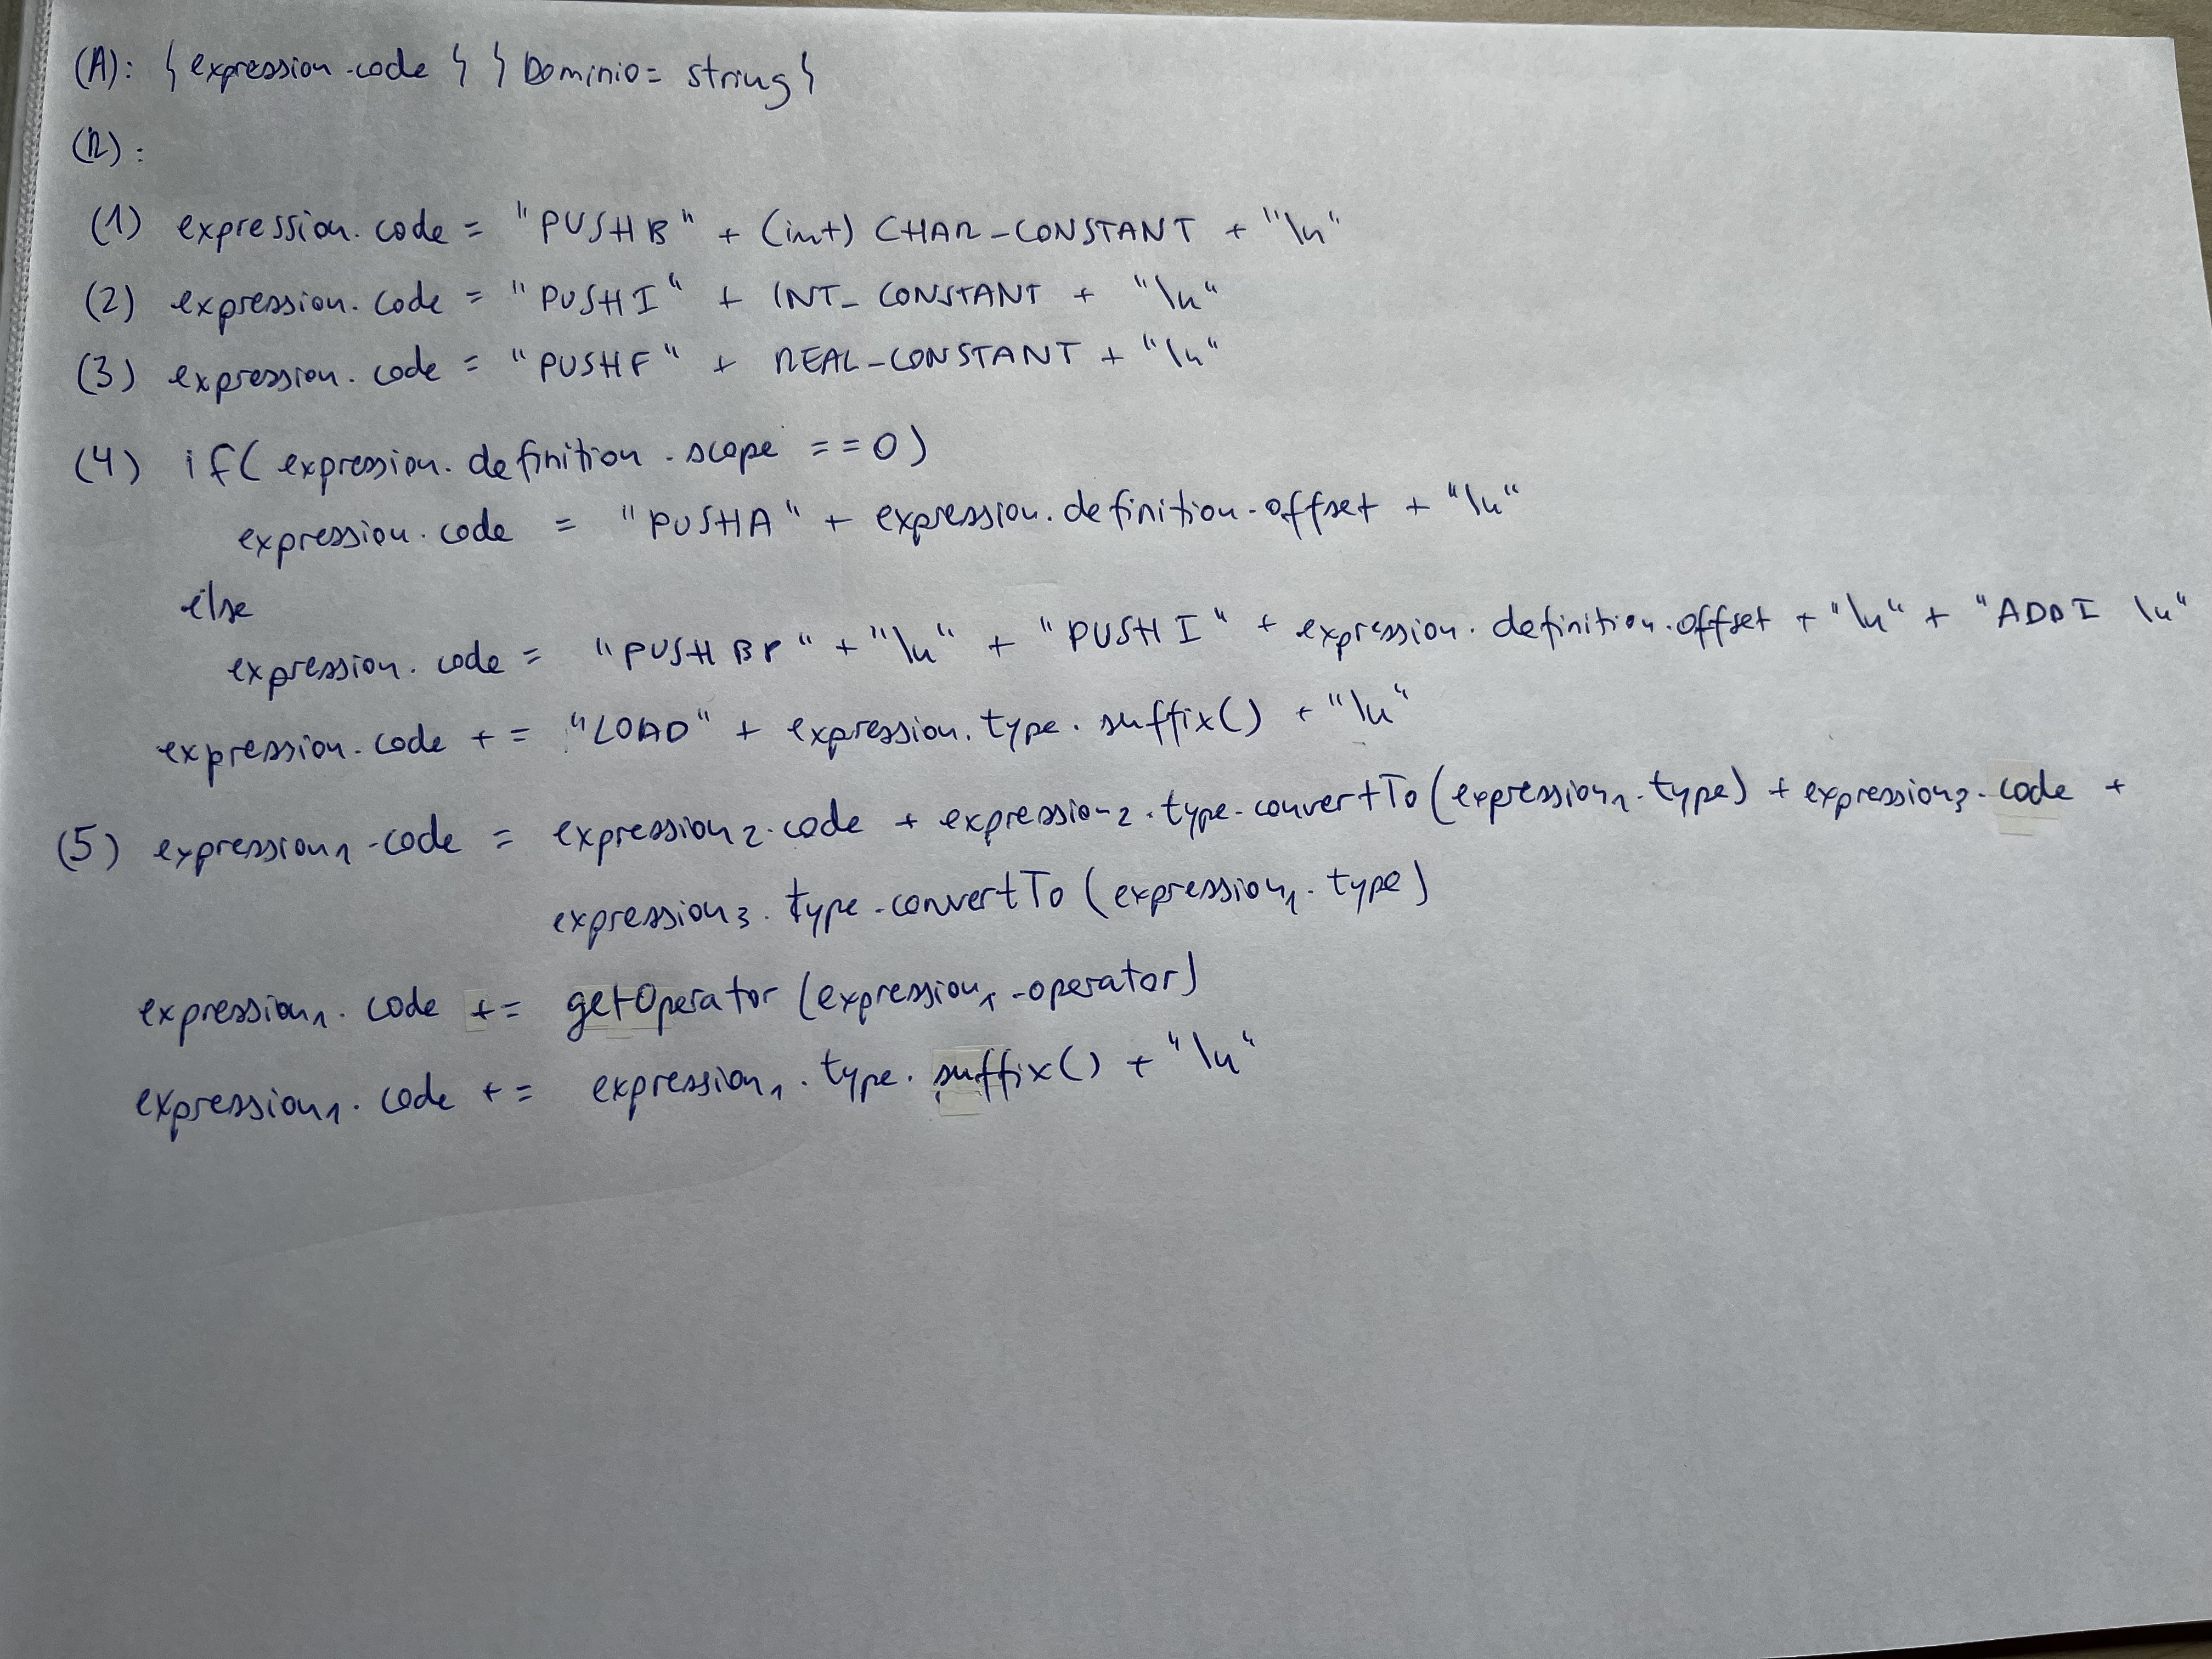 (A): { expression.code } { Dominio = string }
(R) :
(1) expression.code = "PUSHB" + (int) CHAR-CONSTANT + "\n"
(2) expression.code = "PUSHI" + INT-CONSTANT + "\n"
(3) expression.code = "PUSHF" + REAL-CONSTANT + "\n"
(4) if( expression.definition.scope ==0)
expression.code = "PUSHA" + expression.definition.offset + "\n"
else
expression.code = "PUSH BP" + "\n" + "PUSHI" + expression.definition.offset + "\n" + "ADDI \n"
expression.code += "LOAD" + expression.type.suffix() + "\n"
(5) expression₁.code = expression₂.code + expression₂.type.convertTo(expression₁.type) + expression₃.code +
expression₃.type.convertTo(expression₁.type)
expression₁.code += getOperator(expression₁.operator)
expression₁.code += expression₁.type.suffix() + "\n"